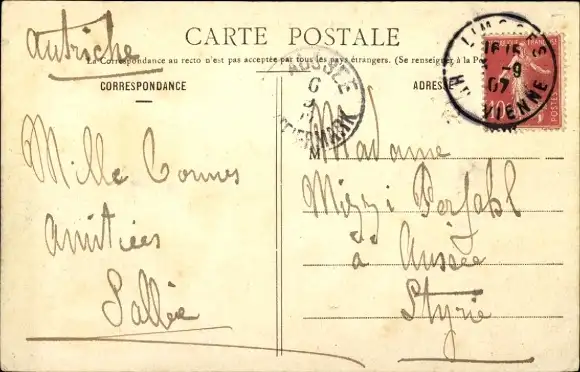 Autriche
CARTE POSTALE
La Correspondance au recto n'est pas acceptée par tous les pays étrangers. (Se renseigner à la Po
CORRESPONDANCE
ADRES
LIMOGES
16 15
9
07
Hte VIENNE
AUSSEE
6
9
STEIERMARK
10
POSTES
Madame
Mizzi Perfahl
à Aussée
Styrie
Mille bonnes
amitiées